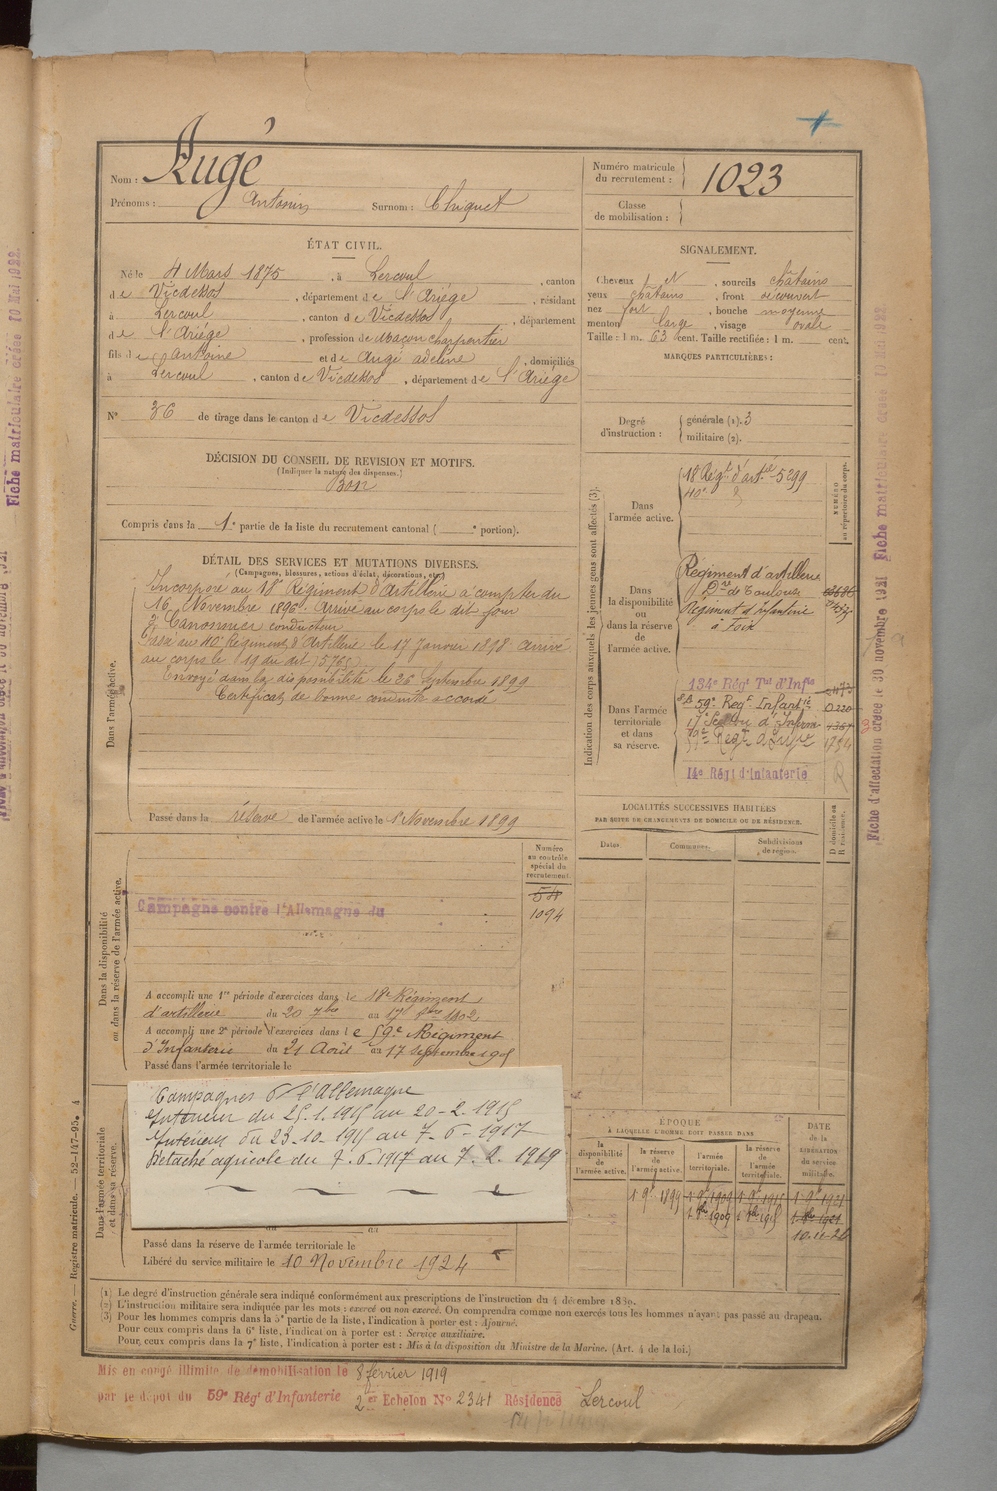 Nom : Augé
Prénoms : Antonin Surnom : Chiquet
Numéro matricule du recrutement : 1023
Classe de mobilisation :
ÉTAT CIVIL.
Né le 4 Mars 1875, à Lercoul, canton
de Vicdessos, département de l'Ariége, résidant
à Lercoul, canton de Vicdessos, département
de l'Ariége, profession de Maçon charpentier
fils de Antoine et de Augé adeline, domiciliés
à Lercoul, canton de Vicdessos, département de l'Ariége
N° 36 de tirage dans le canton de Vicdessos
SIGNALEMENT.
Cheveux et, sourcils châtains
yeux châtains, front découvert
nez fort, bouche moyenne
menton large, visage ovale
Taille : 1 m. 63 cent. Taille rectifiée : 1 m. cent.
MARQUES PARTICULIÈRES :
Degré d'instruction : générale (1). 3
militaire (2).
DÉCISION DU CONSEIL DE REVISION ET MOTIFS.
(Indiquer la nature des dispenses.)
Bon
Compris dans la 1e partie de la liste du recrutement cantonal ( e portion).
DÉTAIL DES SERVICES ET MUTATIONS DIVERSES.
(Campagnes, blessures, actions d'éclat, décorations, etc.)
Dans l'armée active.
Incorporé au 18e Régiment d'Artillerie à compter du
16 Novembre 1896. Arrivé au corps le dit jour
2e Canonnier conducteur
Passé au 40e Régiment d'Artillerie le 17 Janvier 1898 arrivé
au corps le 19 du dit
Envoyé dans la disponibilité le 26 Septembre 1899
Certificat de bonne conduite accordé
Passé dans la réserve de l'armée active le 1 Novembre 1899
Indication des corps auxquels les jeunes gens sont affectés (3).
NUMÉRO au répertoire du corps.
Dans l'armée active.
18 Régt d'arte 5299
40e
Dans la disponibilité ou dans la réserve de l'armée active.
Régiment d'artillerie
de Toulouse
Régiment d'Infanterie
à Foix
Dans l'armée territoriale et dans sa réserve.
134e Régt Tal d'Infie
59e Regt Infantie 0220
17e Section d'Infirm 4367
14e Régt d'Infanterie
LOCALITÉS SUCCESSIVES HABITÉES
PAR SUITE DE CHANGEMENTS DE DOMICILE OU DE RÉSIDENCE.
Dates. Communes. Subdivisions de région. D domicile ou R résidence.
Dans la disponibilité ou dans la réserve de l'armée active.
Numéro au contrôle spécial du recrutement.
1094
Campagne contre l'Allemagne du
A accompli une 1re période d'exercices dans le 18e Régiment
d'artillerie du 20 7bre au 17 8bre 1902
A accompli une 2e période d'exercices dans le 59e Régiment
d'Infanterie du 21 Août au 17 Septembre 1905
Passé dans l'armée territoriale le
Dans l'armée territoriale et dans sa réserve.
Campagnes c/ l'Allemagne
Intérieur du 25.1.1915 au 20-2.1915
Intérieur du 23-10.1915 au 7-6-1917
Détaché agricole du 7.6.1917 au 7.2.1919
Passé dans la réserve de l'armée territoriale le
Libéré du service militaire le 10 Novembre 1924
ÉPOQUE
À LAQUELLE L'HOMME DOIT PASSER DANS
la disponibilité de l'armée active. la réserve de l'armée active. l'armée territoriale. la réserve de l'armée territoriale.
DATE de la LIBÉRATION du service militaire.
1 9e 1899 1 9e 1909 1 9e 1915 1 9e 1921
(1) Le degré d'instruction générale sera indiqué conformément aux prescriptions de l'instruction du 4 décembre 1889.
(2) L'instruction militaire sera indiquée par les mots : exercé ou non exercé. On comprendra comme non exercés tous les hommes n'ayant pas passé au drapeau.
(3) Pour les hommes compris dans la 5e partie de la liste, l'indication à porter est : Ajourné.
Pour ceux compris dans la 6e liste, l'indication à porter est : Service auxiliaire.
Pour ceux compris dans la 7e liste, l'indication à porter est : Mis à la disposition du Ministre de la Marine. (Art. 4 de la loi.)
Mis en congé illimité de démobilisation le 8 février 1919
par le dépôt du 59e Régt d'Infanterie 2e Echelon N° 2341 Résidence Lercoul
Guerre. — Registre matricule. — 52-147-95. 4
Fiche matriculaire créée 10 Mai 1922
Fiche d'affectation créée le 30 novembre 1921 Fiche matriculaire créée 10 Mai 1922